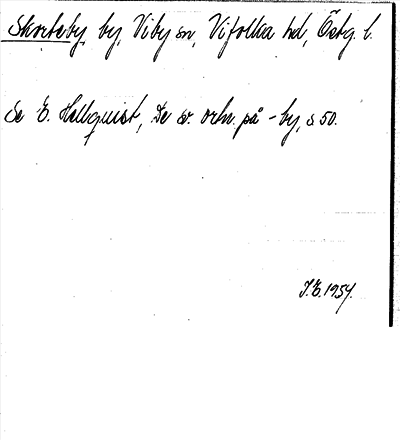 Skorteby, by, Viby sn, Vifolka hd, Östg. l.
Se E. Hellquist, De sv. ortn. på -by, s 50.
J.E. 1954.